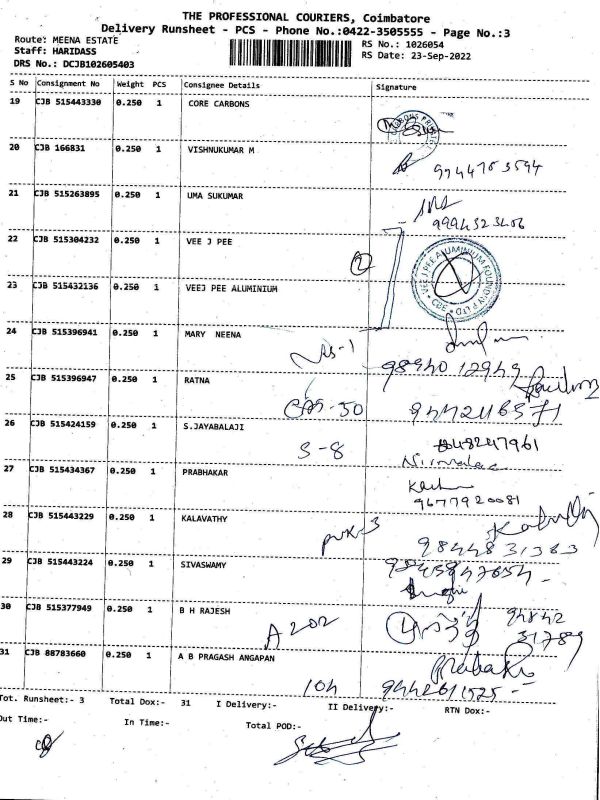 THE PROFESSIONAL COURIERS, Coimbatore
Delivery Runsheet - PCS - Phone No.:0422-3505555 - Page No.:3
Route: MEENA ESTATE
Staff: HARIDASS
DRS No.: DCJB102605403
RS No.: 1026054
RS Date: 23-Sep-2022
S No Consignment No Weight PCS Consignee Details Signature
19 CJB 515443330 0.250 1 CORE CARBONS
20 CJB 166831 0.250 1 VISHNUKUMAR M
9944783594
21 CJB 515263895 0.250 1 UMA SUKUMAR
9994323406
22 CJB 515304232 0.250 1 VEE J PEE
2
VEEJ PEE ALUMINIUM FOUNDRY P LTD
CBE
23 CJB 515432136 0.250 1 VEEJ PEE ALUMINIUM
24 CJB 515396941 0.250 1 MARY NEENA
98940 12949
25 CJB 515396947 0.250 1 RATNA
9442416571
26 CJB 515424159 0.250 1 S.JAYABALAJI
S-8
Nirmala
27 CJB 515434367 0.250 1 PRABHAKAR
9677920081
28 CJB 515443229 0.250 1 KALAVATHY
98448 31383
29 CJB 515443224 0.250 1 SIVASWAMY
30 CJB 515377949 0.250 1 B H RAJESH
A 202
94842
31789
31 CJB 88783660 0.250 1 A B PRAGASH ANGAPAN
104
9442611525
Tot. Runsheet:- 3 Total Dox:- 31 I Delivery:- II Delivery:- RTN Dox:-
Out Time:- In Time:- Total POD:-